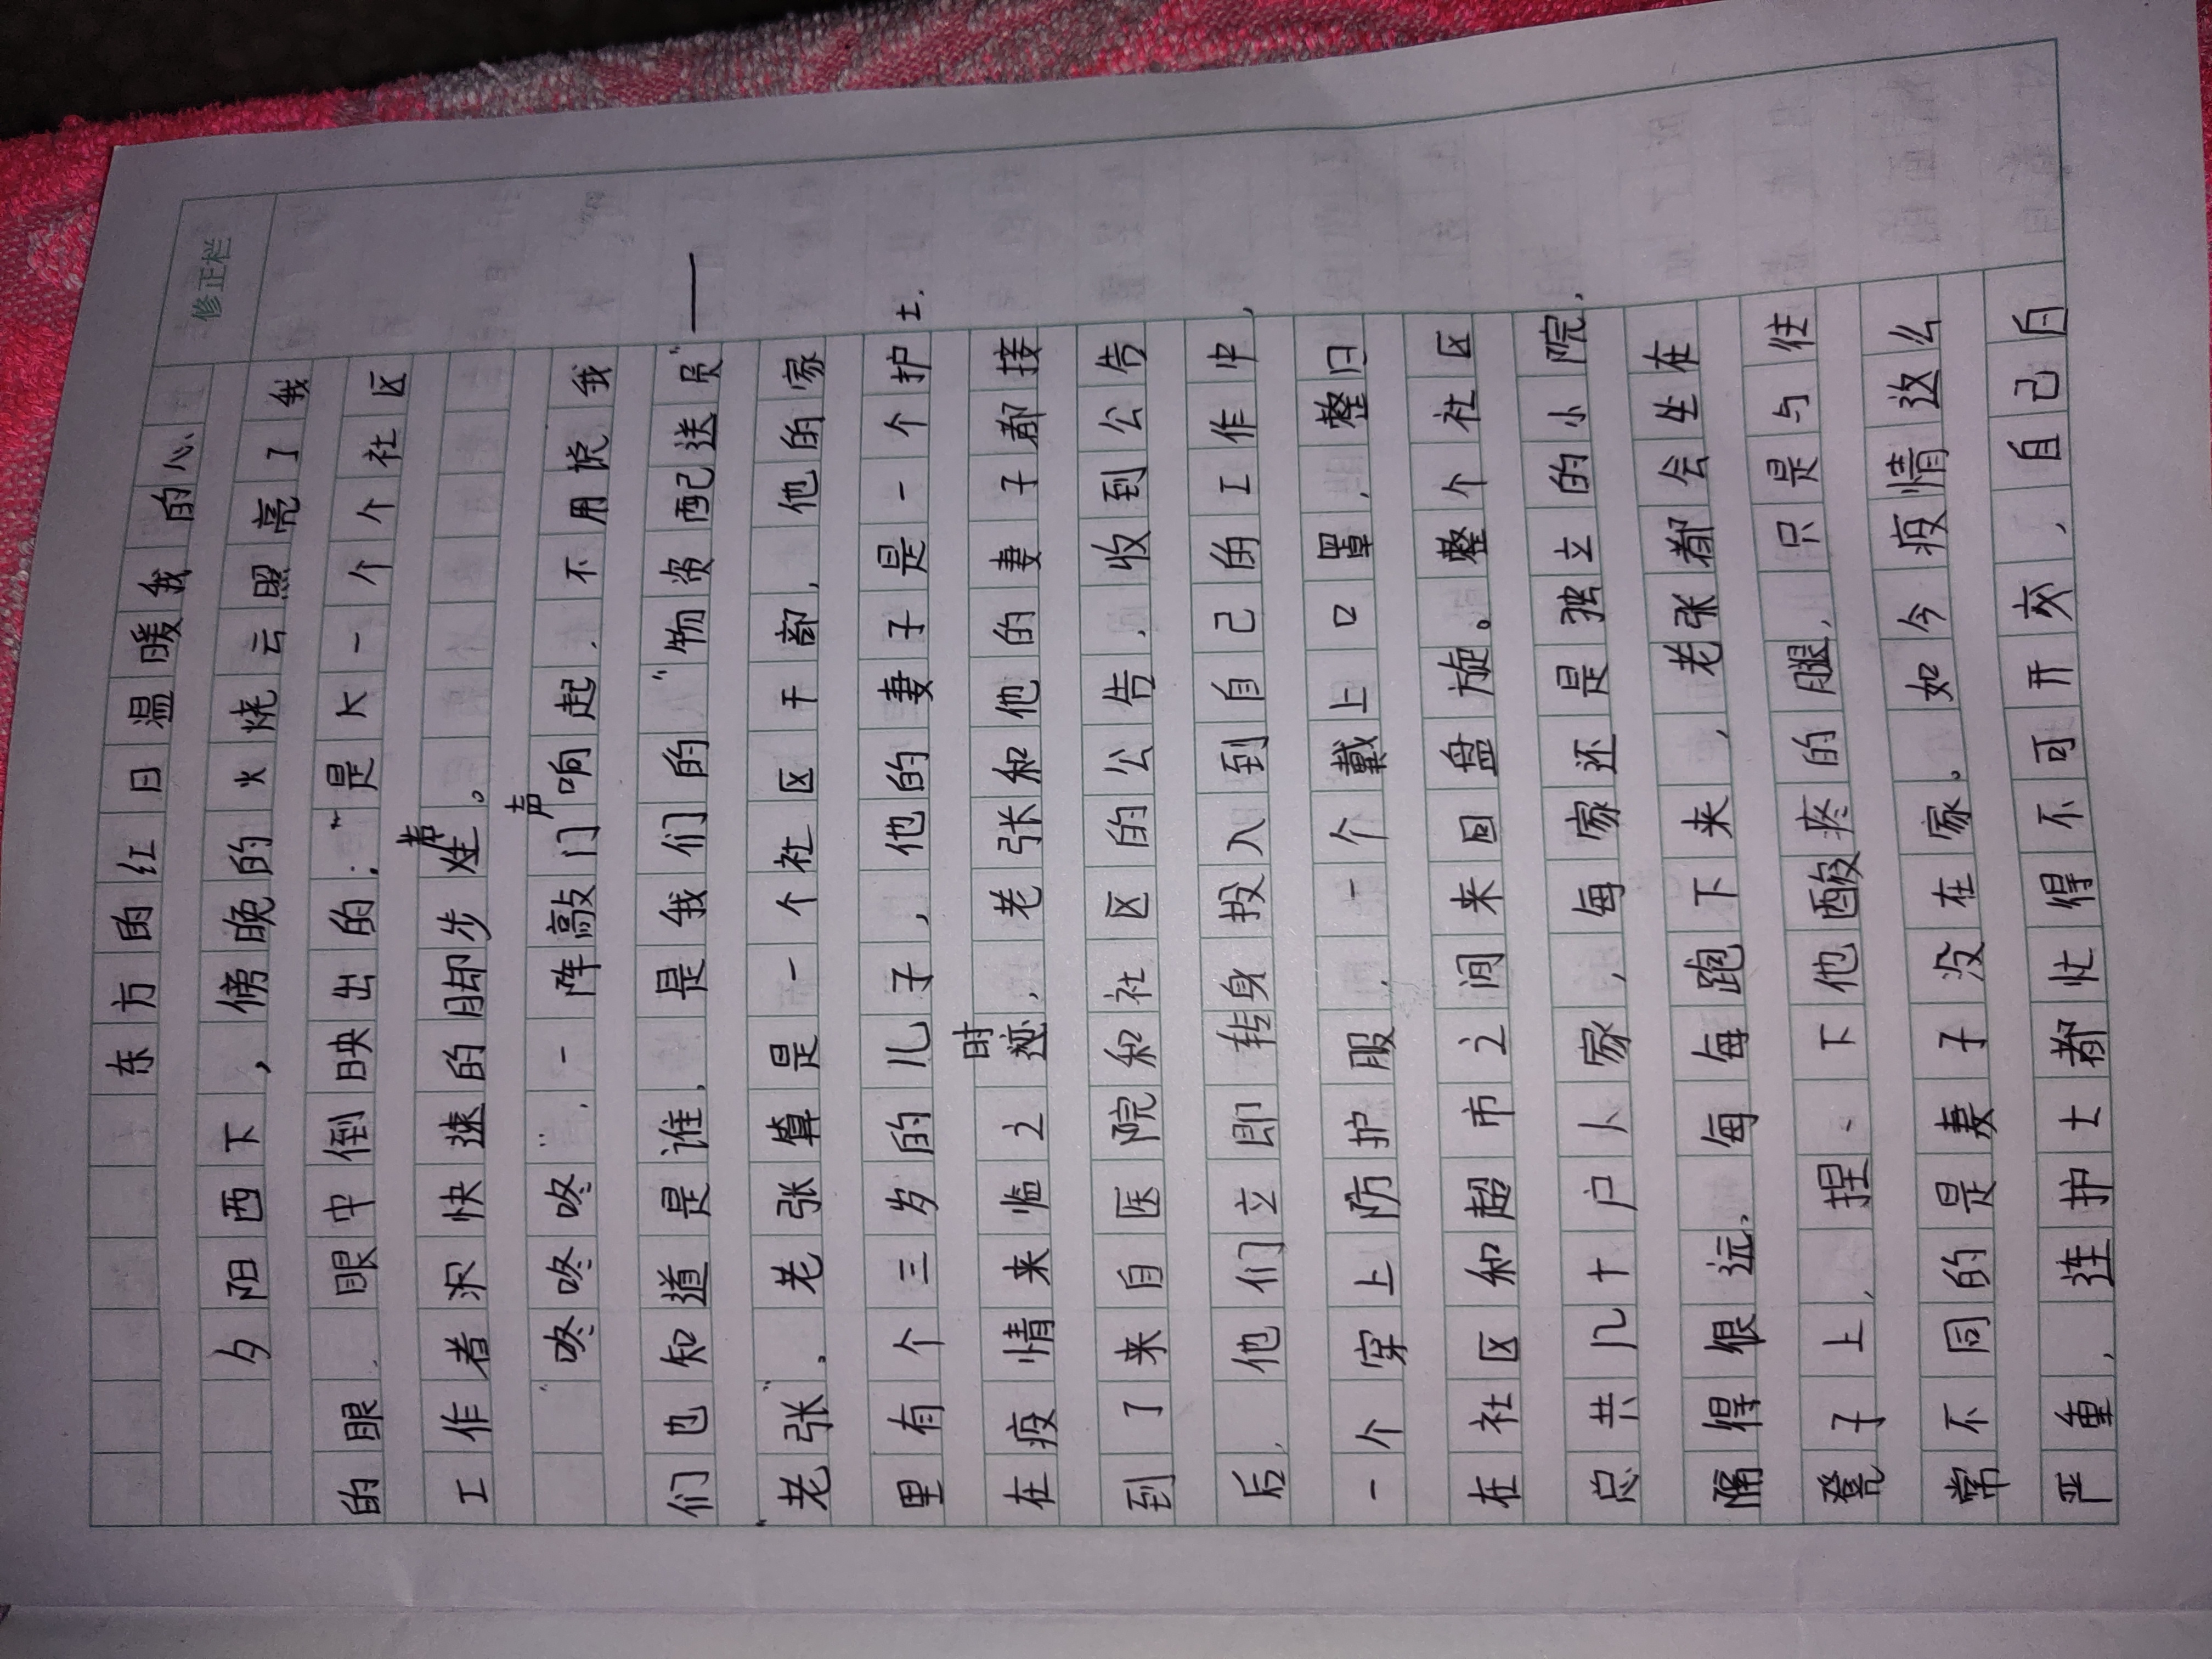 修正栏
东方的红日温暖我的心
夕阳西下，傍晚的火烧云照亮了我
的眼，眼中倒映出的：“是大一个个社区
工作者沉快速的脚步声。
“咚咚咚”，一阵敲门声响起，不用说我
们也知道是谁，是我们的“物资配送员”——
“老张”，老张算是一个社区干部，他的家
里有个三岁的儿子，他的妻子是一个护士，
在疫情来临之时，老张和他的妻子都接
到了来自医院和社区的公告，收到公告
后，他们立即转身投入到自己的工作中，
一个穿上防护服，一个戴上口罩，整日
在社区和超市之间来回盘旋。整个社区
总共几十户人家，每家还是独立的小院，
隔得很远，每每跑下来，老张都会坐在
凳子上，捏一下他酸疼的腿，只是与往
常不同的是妻子没在家。如今疫情这么
严重，连护士都忙得不可开交，自己白